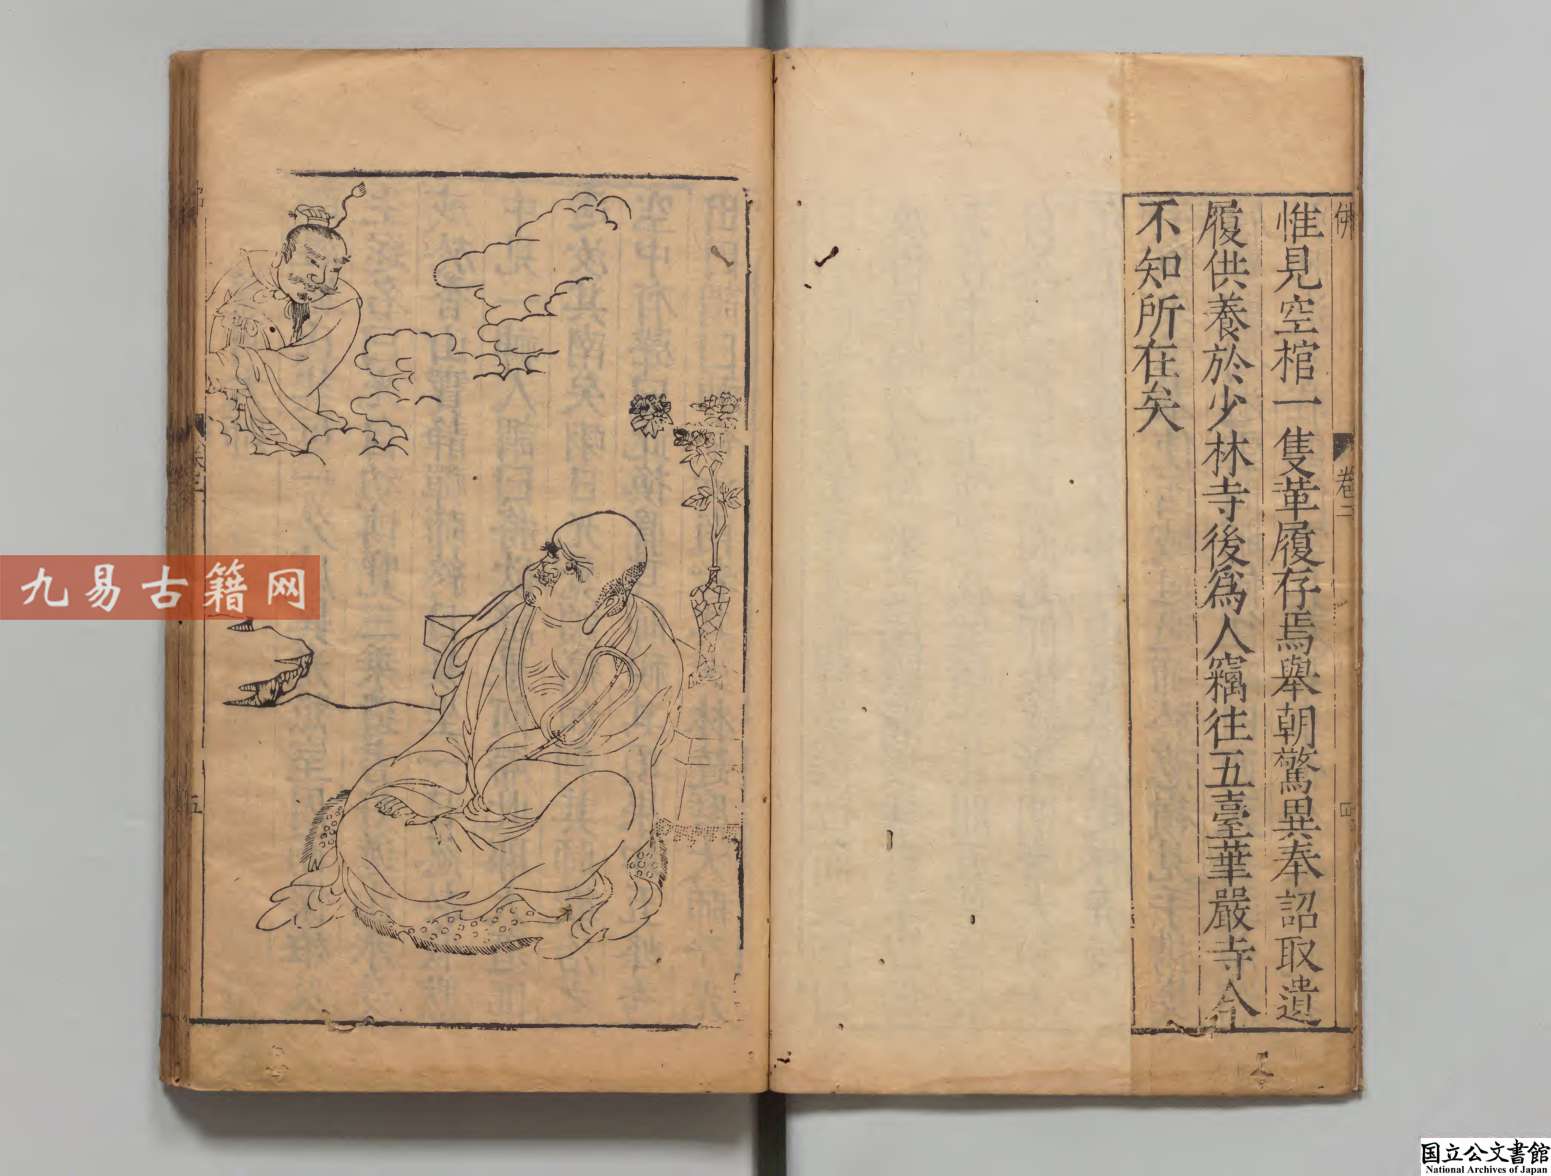 惟見空棺一隻革履存焉舉朝驚異奉詔取遺
履供養於少林寺後爲人竊往五臺華嚴寺今
不知所在矣
卷二
四
五
九易古籍网
国立公文書館
National Archives of Japan